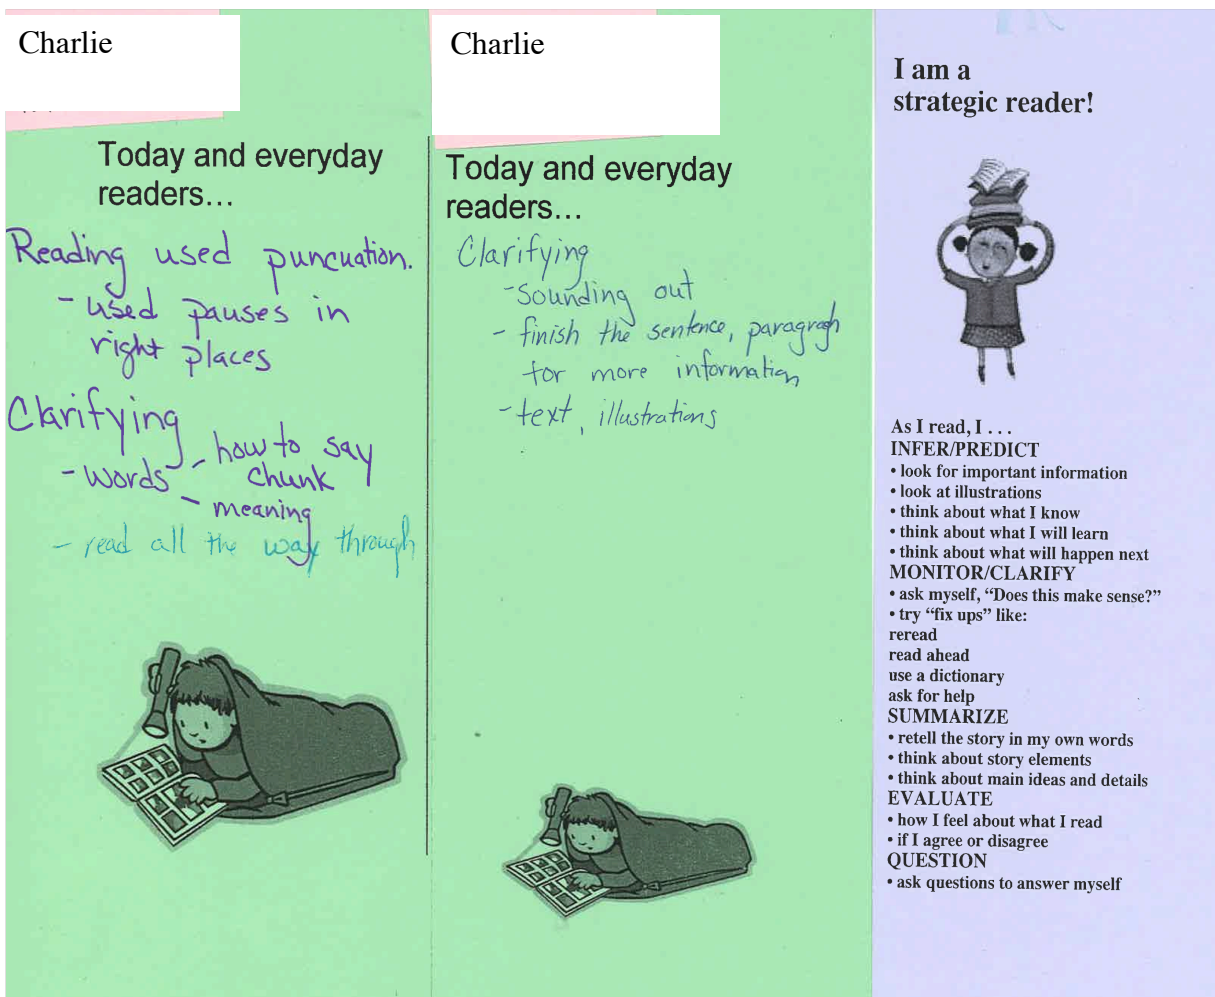 Charlie
Today and everyday
readers...
Reading used puncuation.
- used pauses in
right places
Clarifying
- words - how to say
chunk
- meaning
- read all the way through
Charlie
Today and everyday
readers...
Clarifying
- sounding out
- finish the sentence, paragraph
for more information
- text, illustrations
I am a
strategic reader!
As I read, I . . .
INFER/PREDICT
• look for important information
• look at illustrations
• think about what I know
• think about what I will learn
• think about what will happen next
MONITOR/CLARIFY
• ask myself, “Does this make sense?”
• try “fix ups” like:
reread
read ahead
use a dictionary
ask for help
SUMMARIZE
• retell the story in my own words
• think about story elements
• think about main ideas and details
EVALUATE
• how I feel about what I read
• if I agree or disagree
QUESTION
• ask questions to answer myself